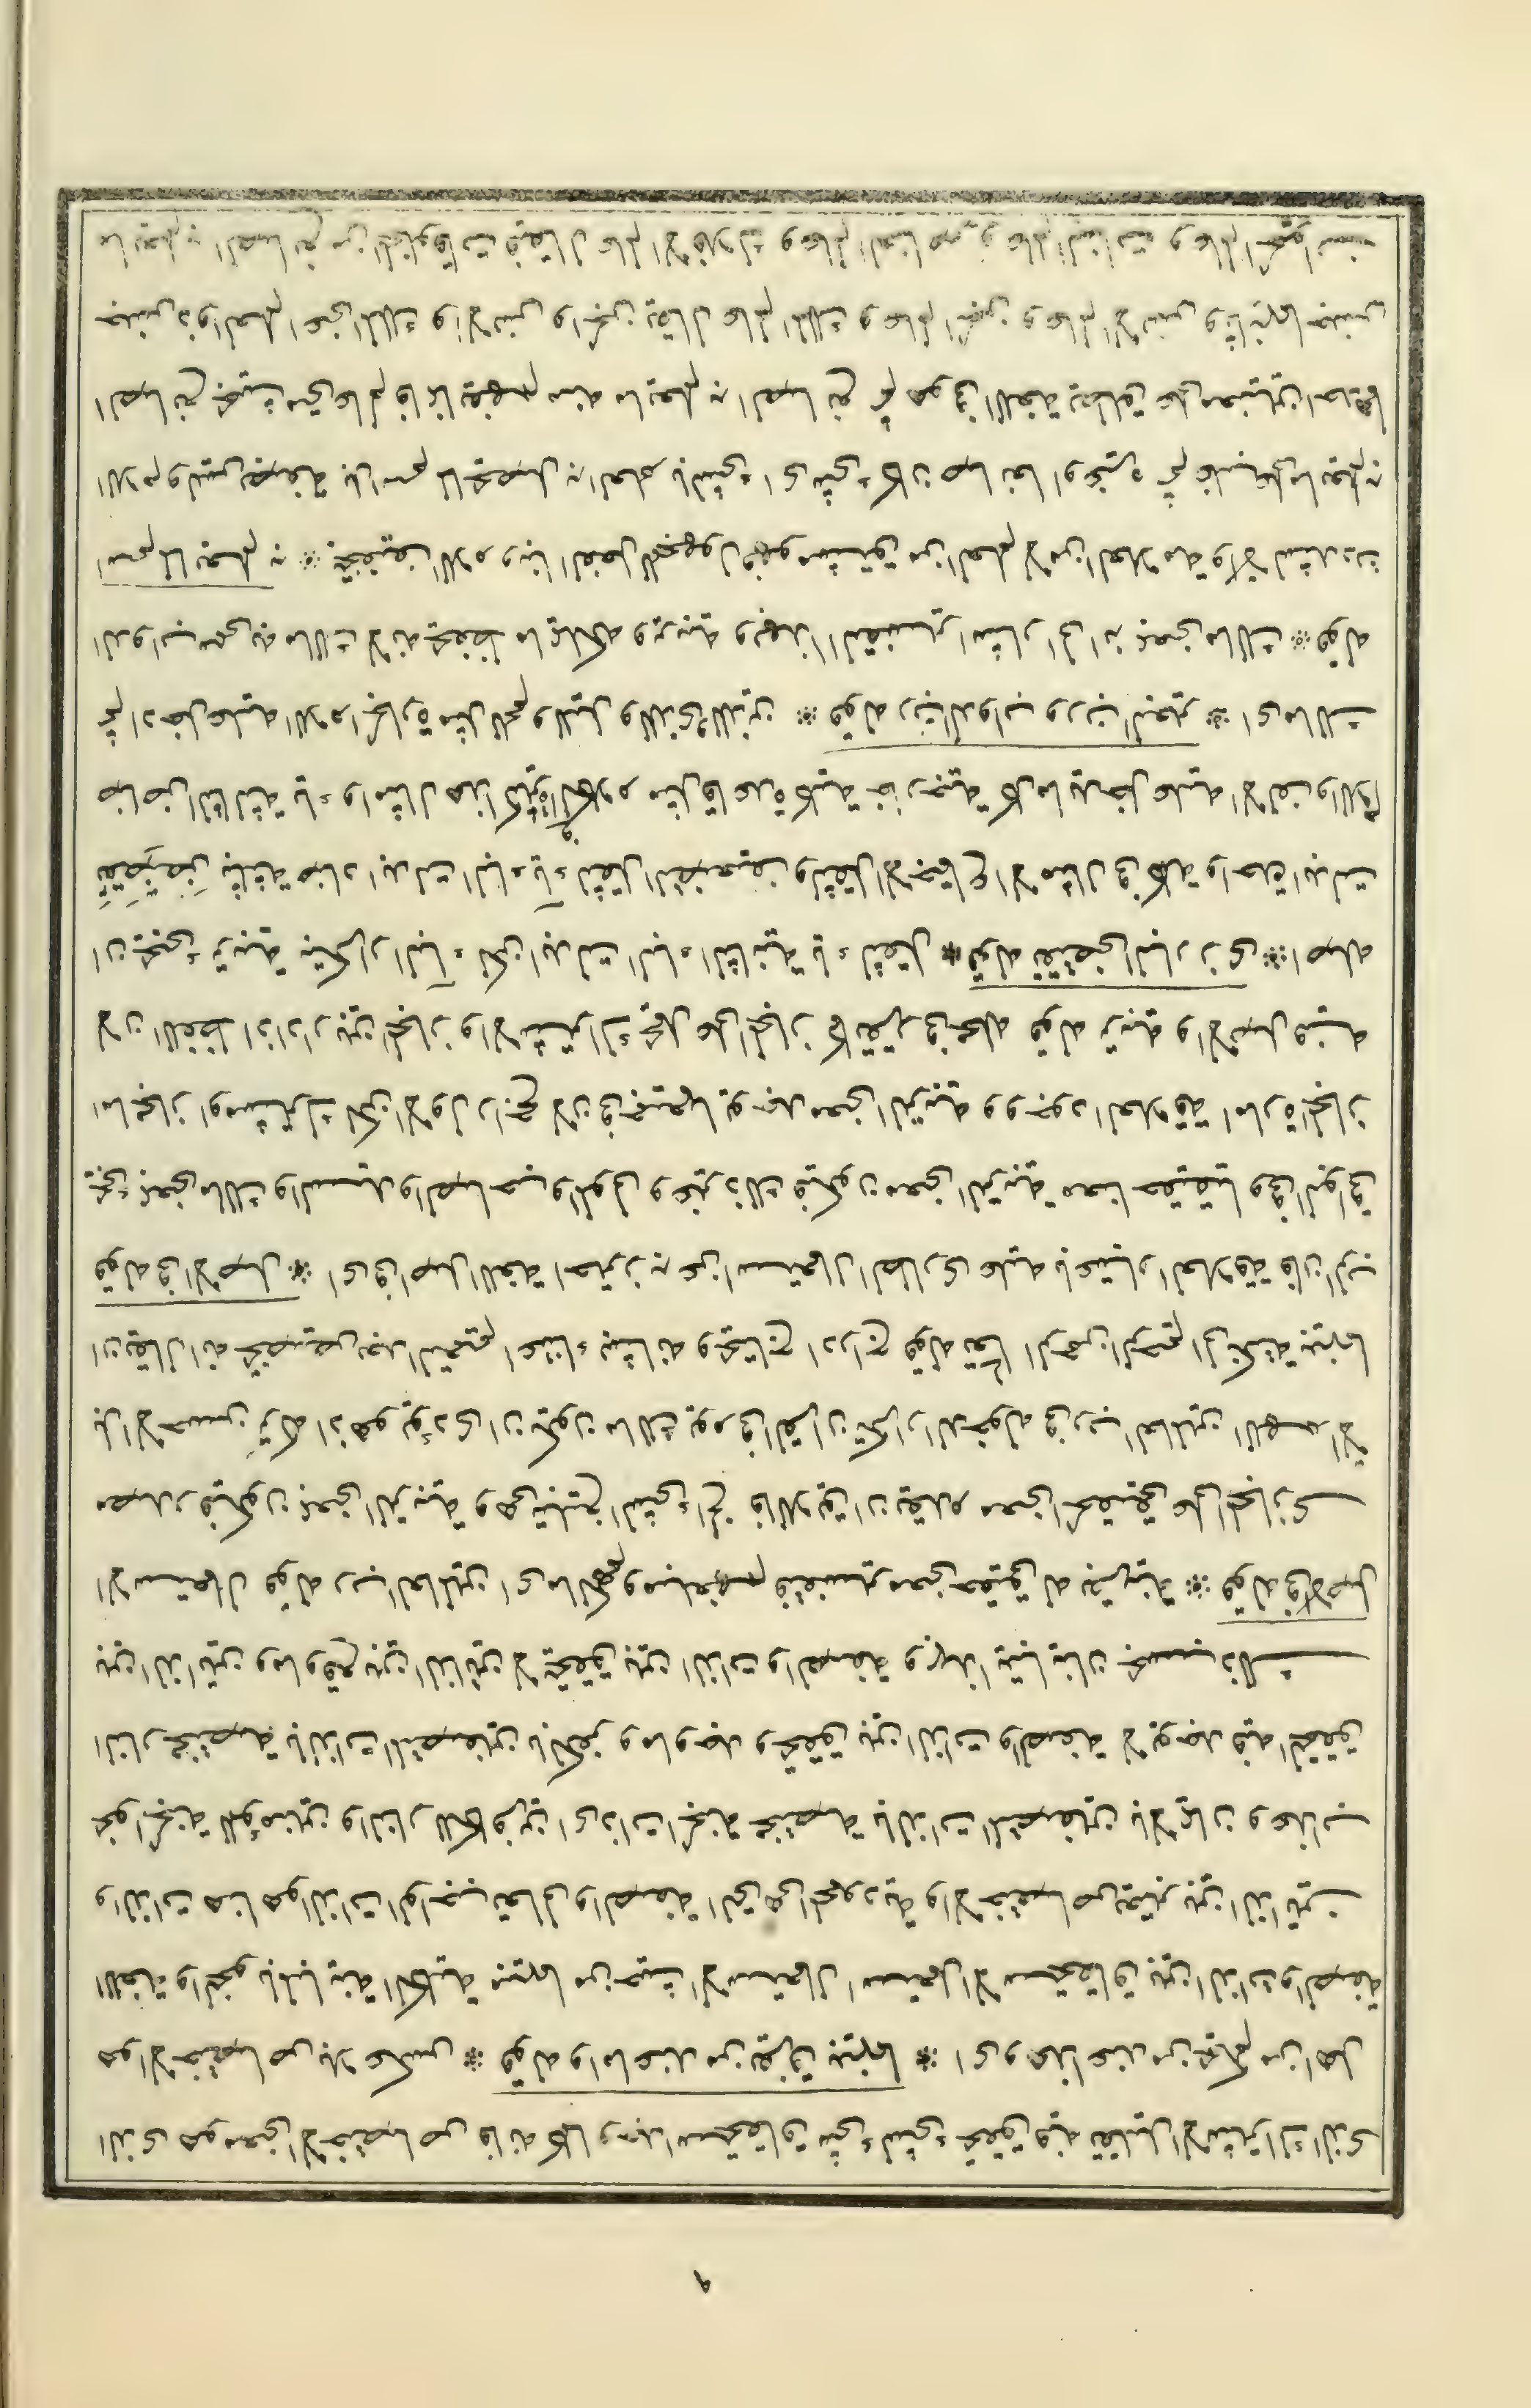 الذى هو معنى الاختصاص فانه كلما وجد استحقاق شىء لشىء تحقق فيه تقليل الاشتراك الذى
هو الاختصاص بلا عكس * قوله واما عند من يفرق بينهما * اى واما عند من يحكم من اهل
اللغة والنحو بالمباينة الكلية بينهما من حيث الاستعمال استعمل الاستحقاق بين الذات والصفة
والذات هنا هو الذات الواجب تعالى والصفة التى هى المحمودية والاختصاص يعتبر بين الذاتين
نحو الجنة للمؤمنين والنار للكافرين اى ذات الجنة مختصة بالذات المتصفين بالايمان وعذاب
النار مختصة بالذات المتصفين بالكفر وما وجد وتحقق بين الذات والصفة لا يوجد فيه التحقق
بين الذاتين وما وقع بين الذاتين لا يتحقق بين الذات والصفة وبهذا يتباينان بحسب ذلك
الاستعمال قوله رب العالمين اى مالكهم فيفسر بمعنى حقيقى له بدليل * قوله فى الاصل
مصدر فيكون بمعنى التربية وهى تبليغ الشىء الخ فاللايق ان يقدم معنى الحقيقى على المجازى
بل الاحسن تركه اذ هو يؤدى ان يكون مالك يوم الدين تكرارا لدخوله فى رب العالمين اللهم الا
ان يقال انه تخصيص بعد التعميم اعتناء بشانه ويحتاج ادراج قوله تعالى الرحمن الرحيم الى نكتة بينهما
قوله فى الاصل * اى فى اصل اللغة احترز به عن استعمال الطارى عليه باعتبار العلاقة فان الرب
يجىء بمعنى مالك والسيد والصاحب والمولى وغير ذلك فيكون معنى التربية معنا حقيقيا وفى البواقى
اما مجازا ومشترك لكن الاول راجح لان فى جميعها يوجد معنى التربية ووجود العلاقة امارة المجاز
لان اللفظ اذا دار بين المجاز والاشتراك يحمل على المجاز كما تقرر فى محله قوله تربية والاصل فيه
ان يجىء تربية بتكرار الياء لكن ابدلت الياء الثانية ياء لثقل * قوله تقضى البازى * اصله
تقضض بثلثة ضاد ابدلت الياء ياء لثقل التضعيف والثقل الاجتماع الامثال فى كلمة واحدة ابدلت
ضاض الثالثة ياء وامثال هذا كثيرة الكلام مثل قاعدة كلية خارجية كلما يدخل عليه الالف واللام
اذ دخل عليه اللام الجارة مثل للحم ولليل وللذين * قوله رب الدواب ورب البعير * اى مالك
الدواب سمى به مالك لانه يحفظ ما يملكه ويربيه وبهذا التفسير اشار الى ان بمعنى مالك * قوله
اسم لما يعلم به * تحفيف اللام وبناء الفعل للمجهول وهو مشتق من العلم لا من العلامة ولا لتشديد
اللام وليس بصفة بل اسم لما يحصل به العلم بالشىء اى شىء كان صانعا او غيره ثم غلب على ما يعلم به
الصانع بحيث متى علم فانما يفهم منه ما يعلم به الصانع ثم هو فى اللغة يطلق على معنيين احدهما
جنس ذوى العلم اعنى الملك والانس والجن يقال عالم الملك وعالم الجن وعالم الانس وثانيهما جنس
ما يعلم به الصانع من المخلوقات فيقال عالم الافلاك وعالم العناصر وعالم النباتات وعالم